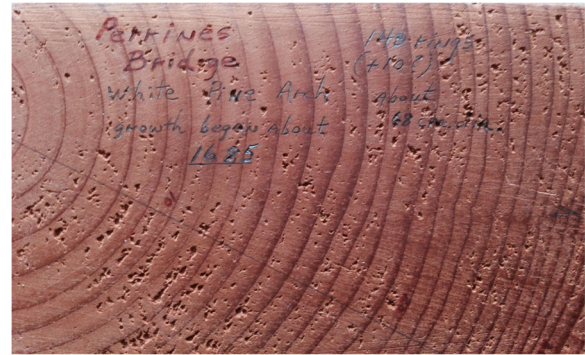 Perrines
Bridge
White Pine Arch
growth began About
1685
143 rings
(+10?)
About
68 cm. dia.